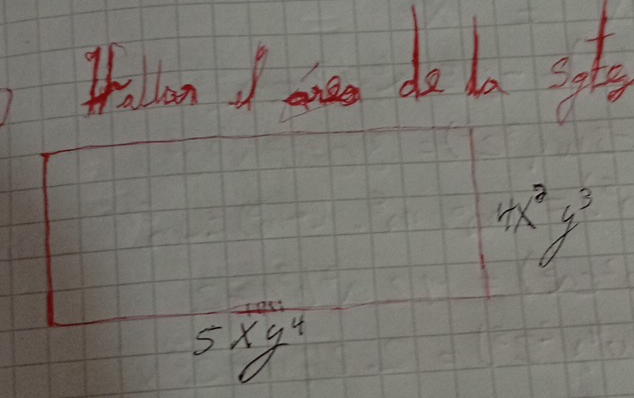 ) Hallar el área de la sgte
4x² y³
5xy⁴